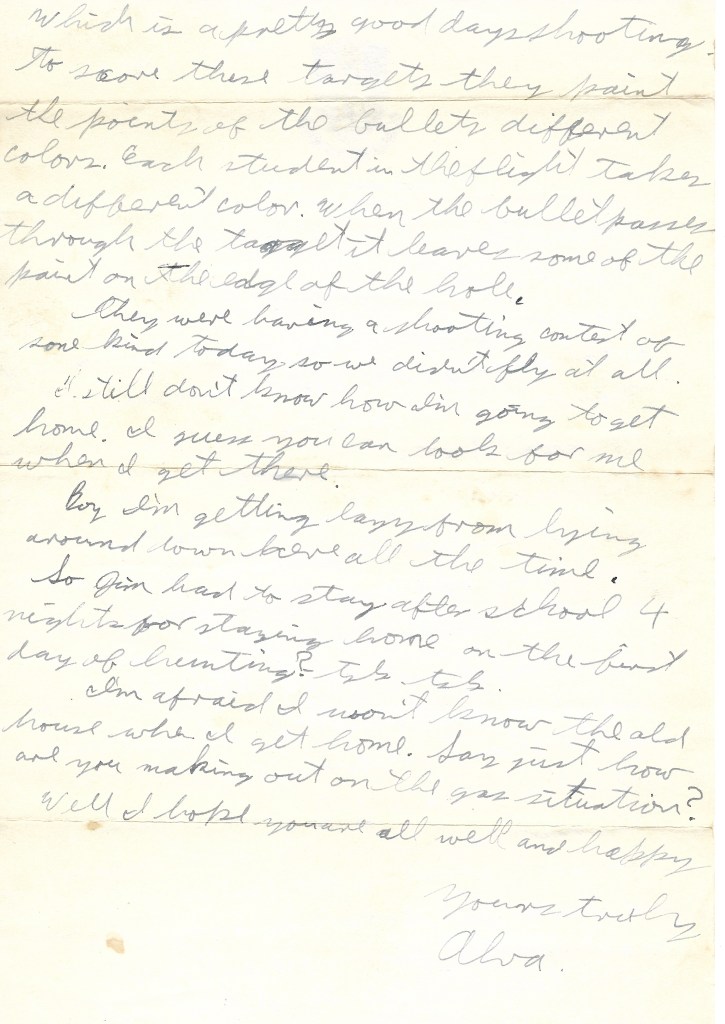 which is a pretty good days shooting.
To score these targets they paint
the points of the bullets different
colors. Each student in the flight takes
a different color. When the bullet passes
through the target it leaves some of the
paint on the edge of the hole.
They were having a shooting contest of
some kind today so we didn't fly at all.
I still don't know how I'm going to get
home. I guess you can look for me
when I get there.
Boy I'm getting lazy from lying
around down here all the time.
So Jim had to stay after school 4
nights for staying home on the first
day of hunting? tsk tsk.
I'm afraid I won't know the old
house when I get home. Say just how
are you making out on the gas situation?
Well I hope you are all well and happy
Yours truly
Alva.